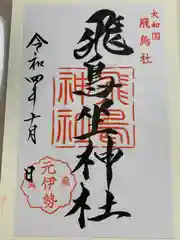 大和国
飛鳥社
飛鳥坐神社
飛鳥
神社
令和四年十月
日
元伊勢